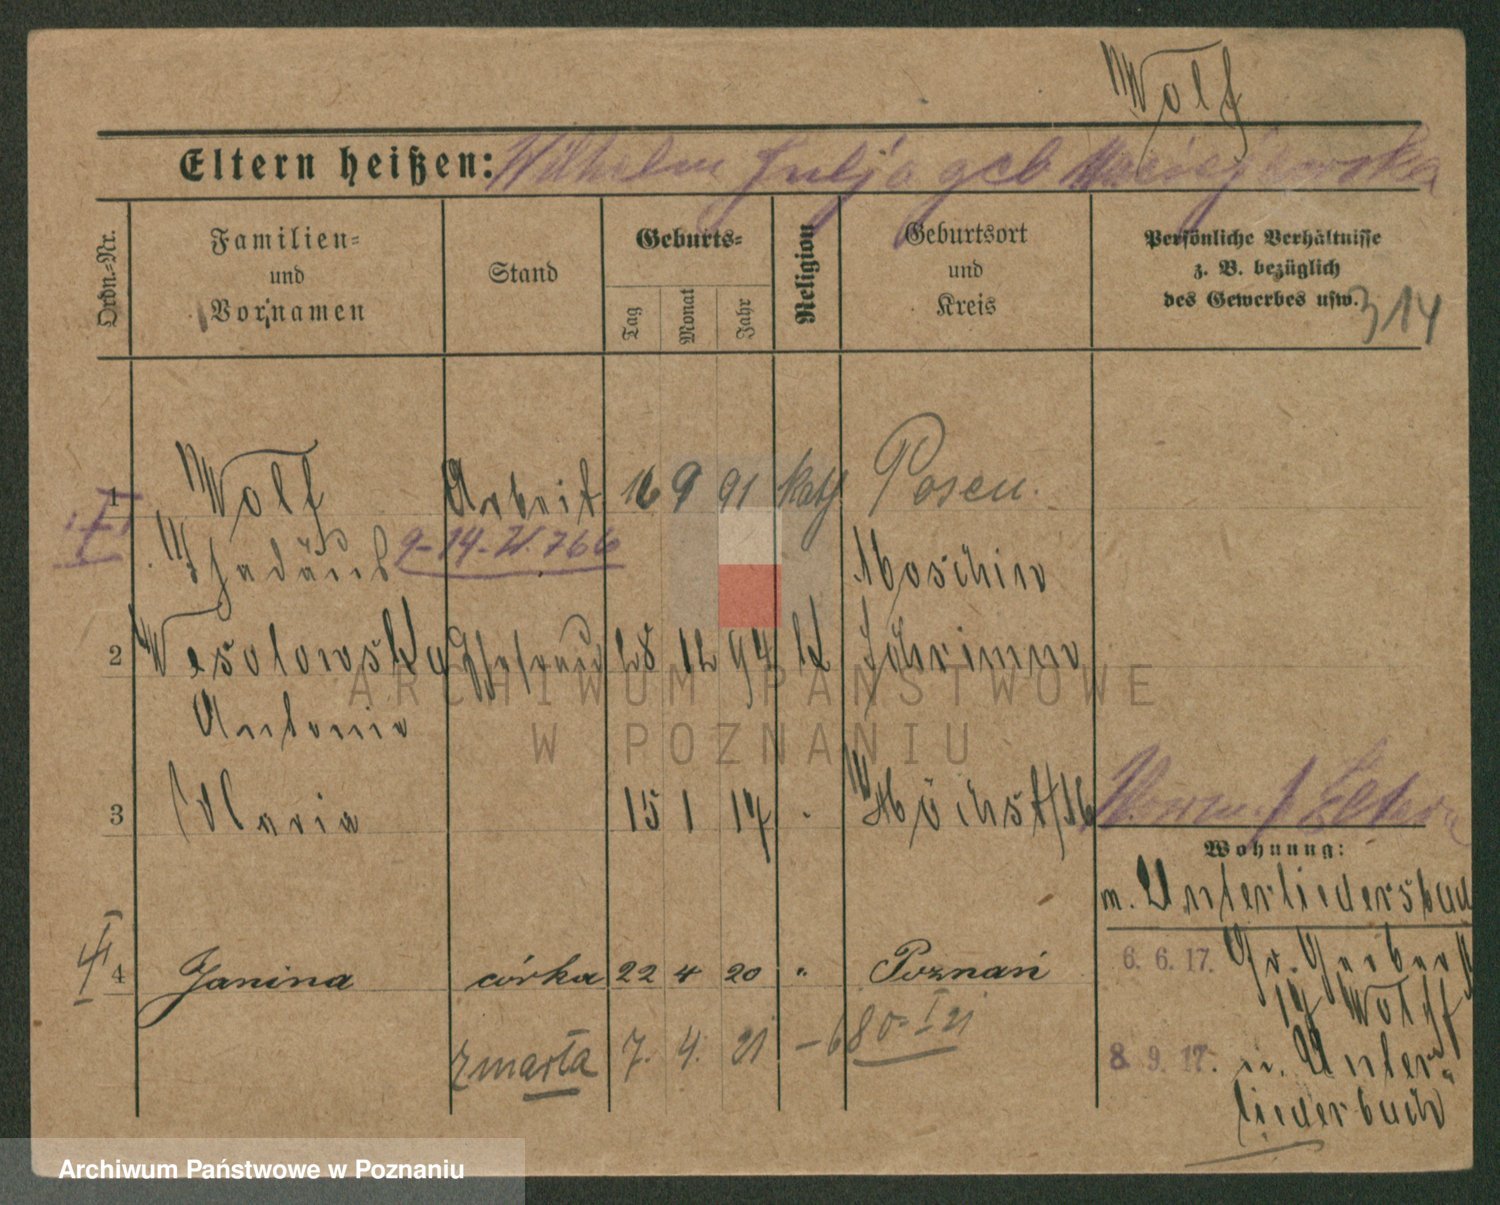 Wolf
Eltern heißen: Wilhelm Julja geb Maciejewska
Ordn.-Nr.
Familien-
und
Vornamen
Stand
Geburts-
Tag
Monat
Jahr
Religion
Geburtsort
und
Kreis
Persönliche Verhältnisse
z. B. bezüglich
des Gewerbes usw.
314
1 Wolf Arbeit 16 9 91 kath Posen
Thadäus 9-14-W.766 Moschin
2 Wesolowska Ehefrau 28 12 94 k Schrimm
Antonie
3 Maria 15 1 17 Höchst/M
Eltern
Wohnung:
n. Unterliederbach
4 Janina córka 22 4 20 " Poznań
6. 6. 17. Gr. Gerber
17 Wolff
zmarła 7. 4. 21 - 680 I 21
8. 9. 17. n. Unter-
liederbach
ARCHIWUM PAŃSTWOWE
W POZNANIU
Archiwum Państwowe w Poznaniu